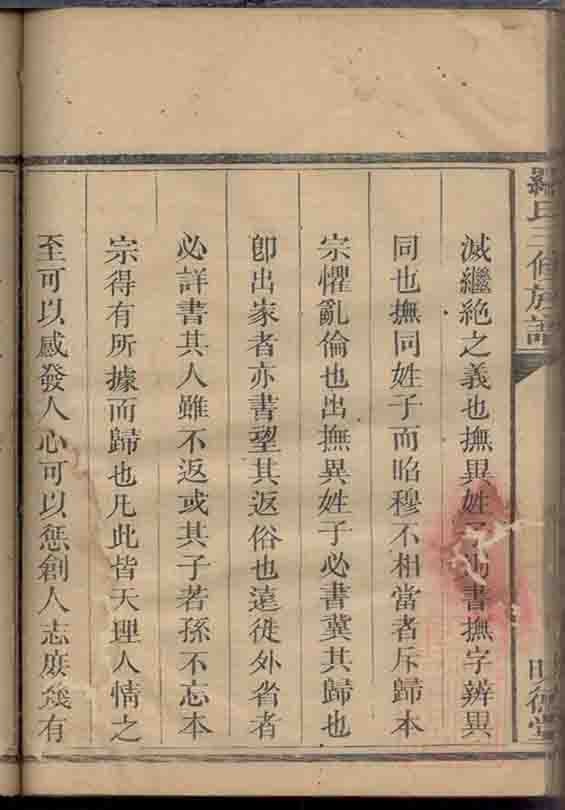 羅氏三修族譜
明德堂
滅繼絶之義也撫異姓子必書撫字辨異
同也撫同姓子而昭穆不相當者斥歸本
宗懼亂倫也出撫異姓子必書冀其歸也
卽出家者亦書望其返俗也遠徙外省者
必詳書其人雖不返或其子若孫不忘本
宗得有所據而歸也凡此皆天理人情之
至可以感發人心可以懲創人志庶幾有